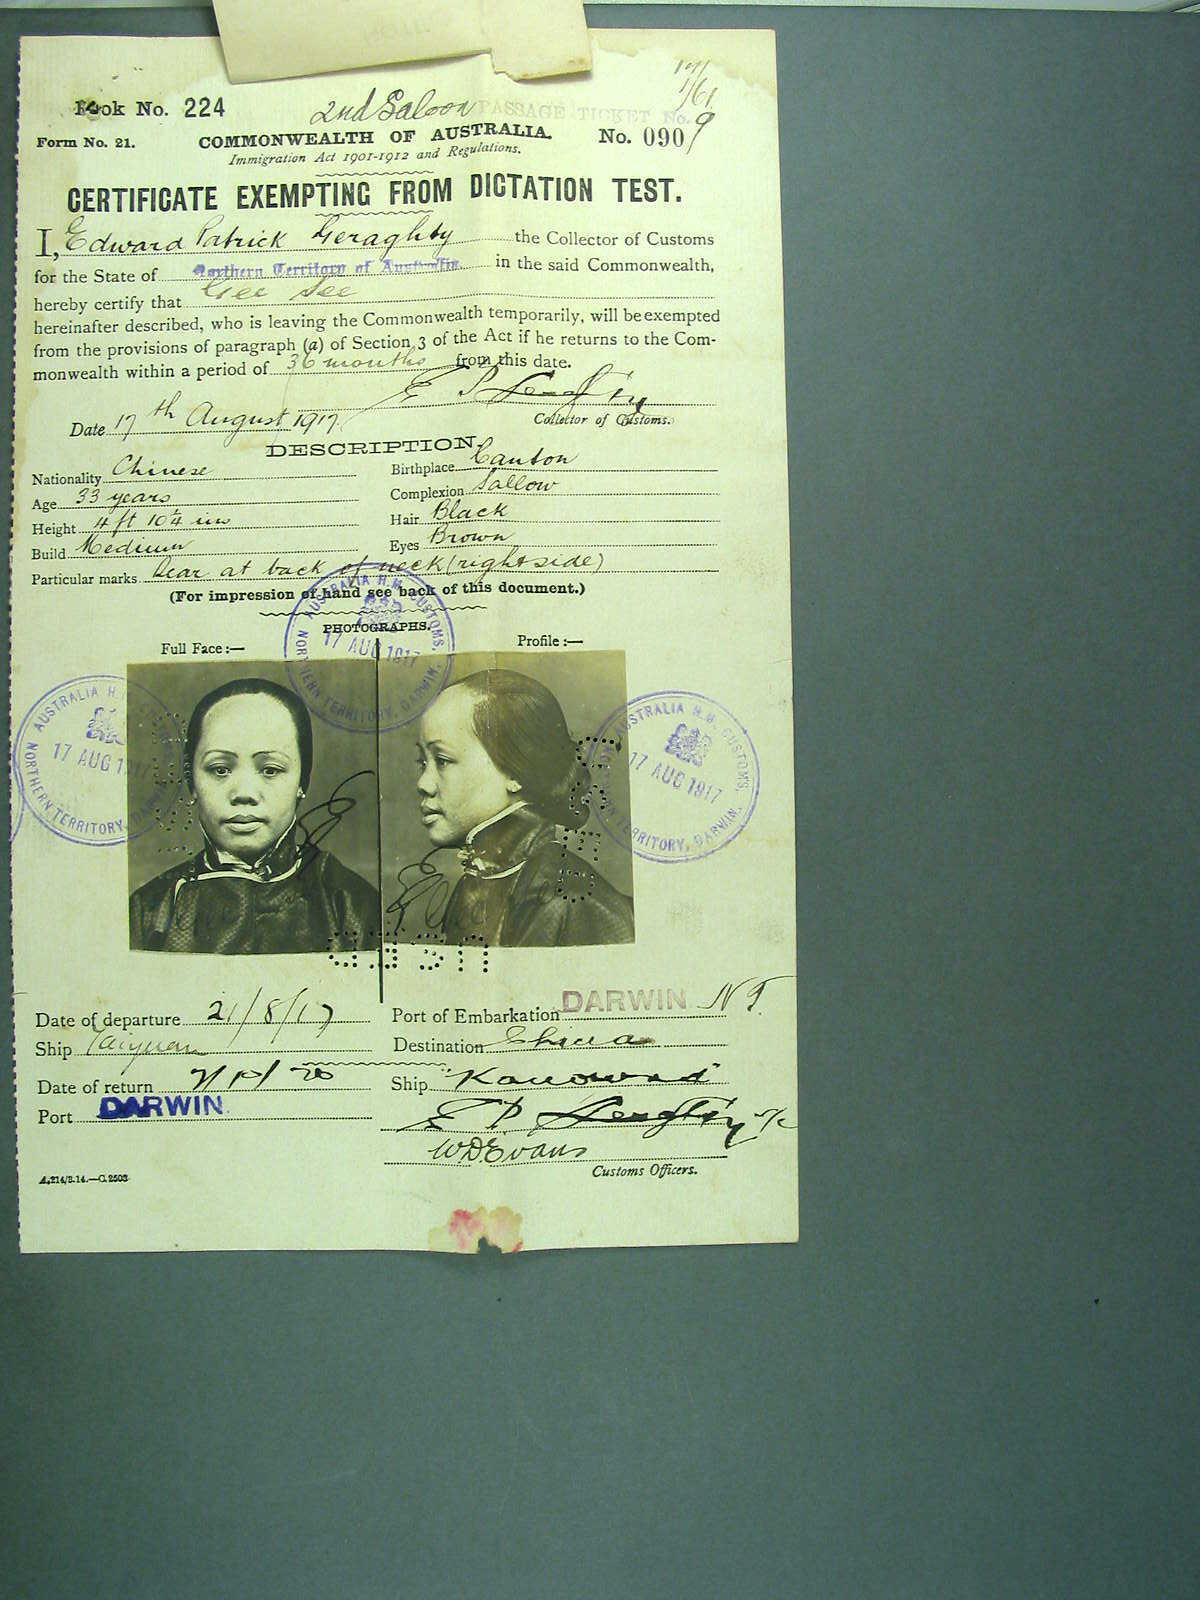 Book No. 224
2nd Saloon PASSAGE TICKET No.
Form No. 21.
COMMONWEALTH OF AUSTRALIA.
No. 090/9
Immigration Act 1901-1912 and Regulations.
CERTIFICATE EXEMPTING FROM DICTATION TEST.
I, Edward Patrick Geraghty the Collector of Customs
for the State of Northern Territory of Australia in the said Commonwealth,
hereby certify that Gee See
hereinafter described, who is leaving the Commonwealth temporarily, will be exempted
from the provisions of paragraph (a) of Section 3 of the Act if he returns to the Com-
monwealth within a period of 36 months from this date.
E P Geraghty
Date 17th August 1917.
Collector of Customs.
DESCRIPTION.
Nationality Chinese
Birthplace Canton
Age 33 years
Complexion Sallow
Height 4 ft 10¼ ins
Hair Black
Build Medium
Eyes Brown
Particular marks Scar at back of neck (right side)
(For impression of hand see back of this document.)
PHOTOGRAPHS.
Full Face:—
Profile:—
AUSTRALIA H.M. CUSTOMS. NORTHERN TERRITORY, DARWIN. 17 AUG 1917
AUSTRALIA H.M. CUSTOMS. NORTHERN TERRITORY, DARWIN. 17 AUG 1917
AUSTRALIA H.M. CUSTOMS. NORTHERN TERRITORY, DARWIN. 17 AUG 1917
USED
USED
Date of departure 21/8/17
Port of Embarkation DARWIN N.T.
Ship Taiyuan
Destination China
Date of return 7/10/20
Ship Kanowna
Port DARWIN.
E P Geraghty
W.D. Evans
Customs Officers.
A.214/3.14.—C.2503